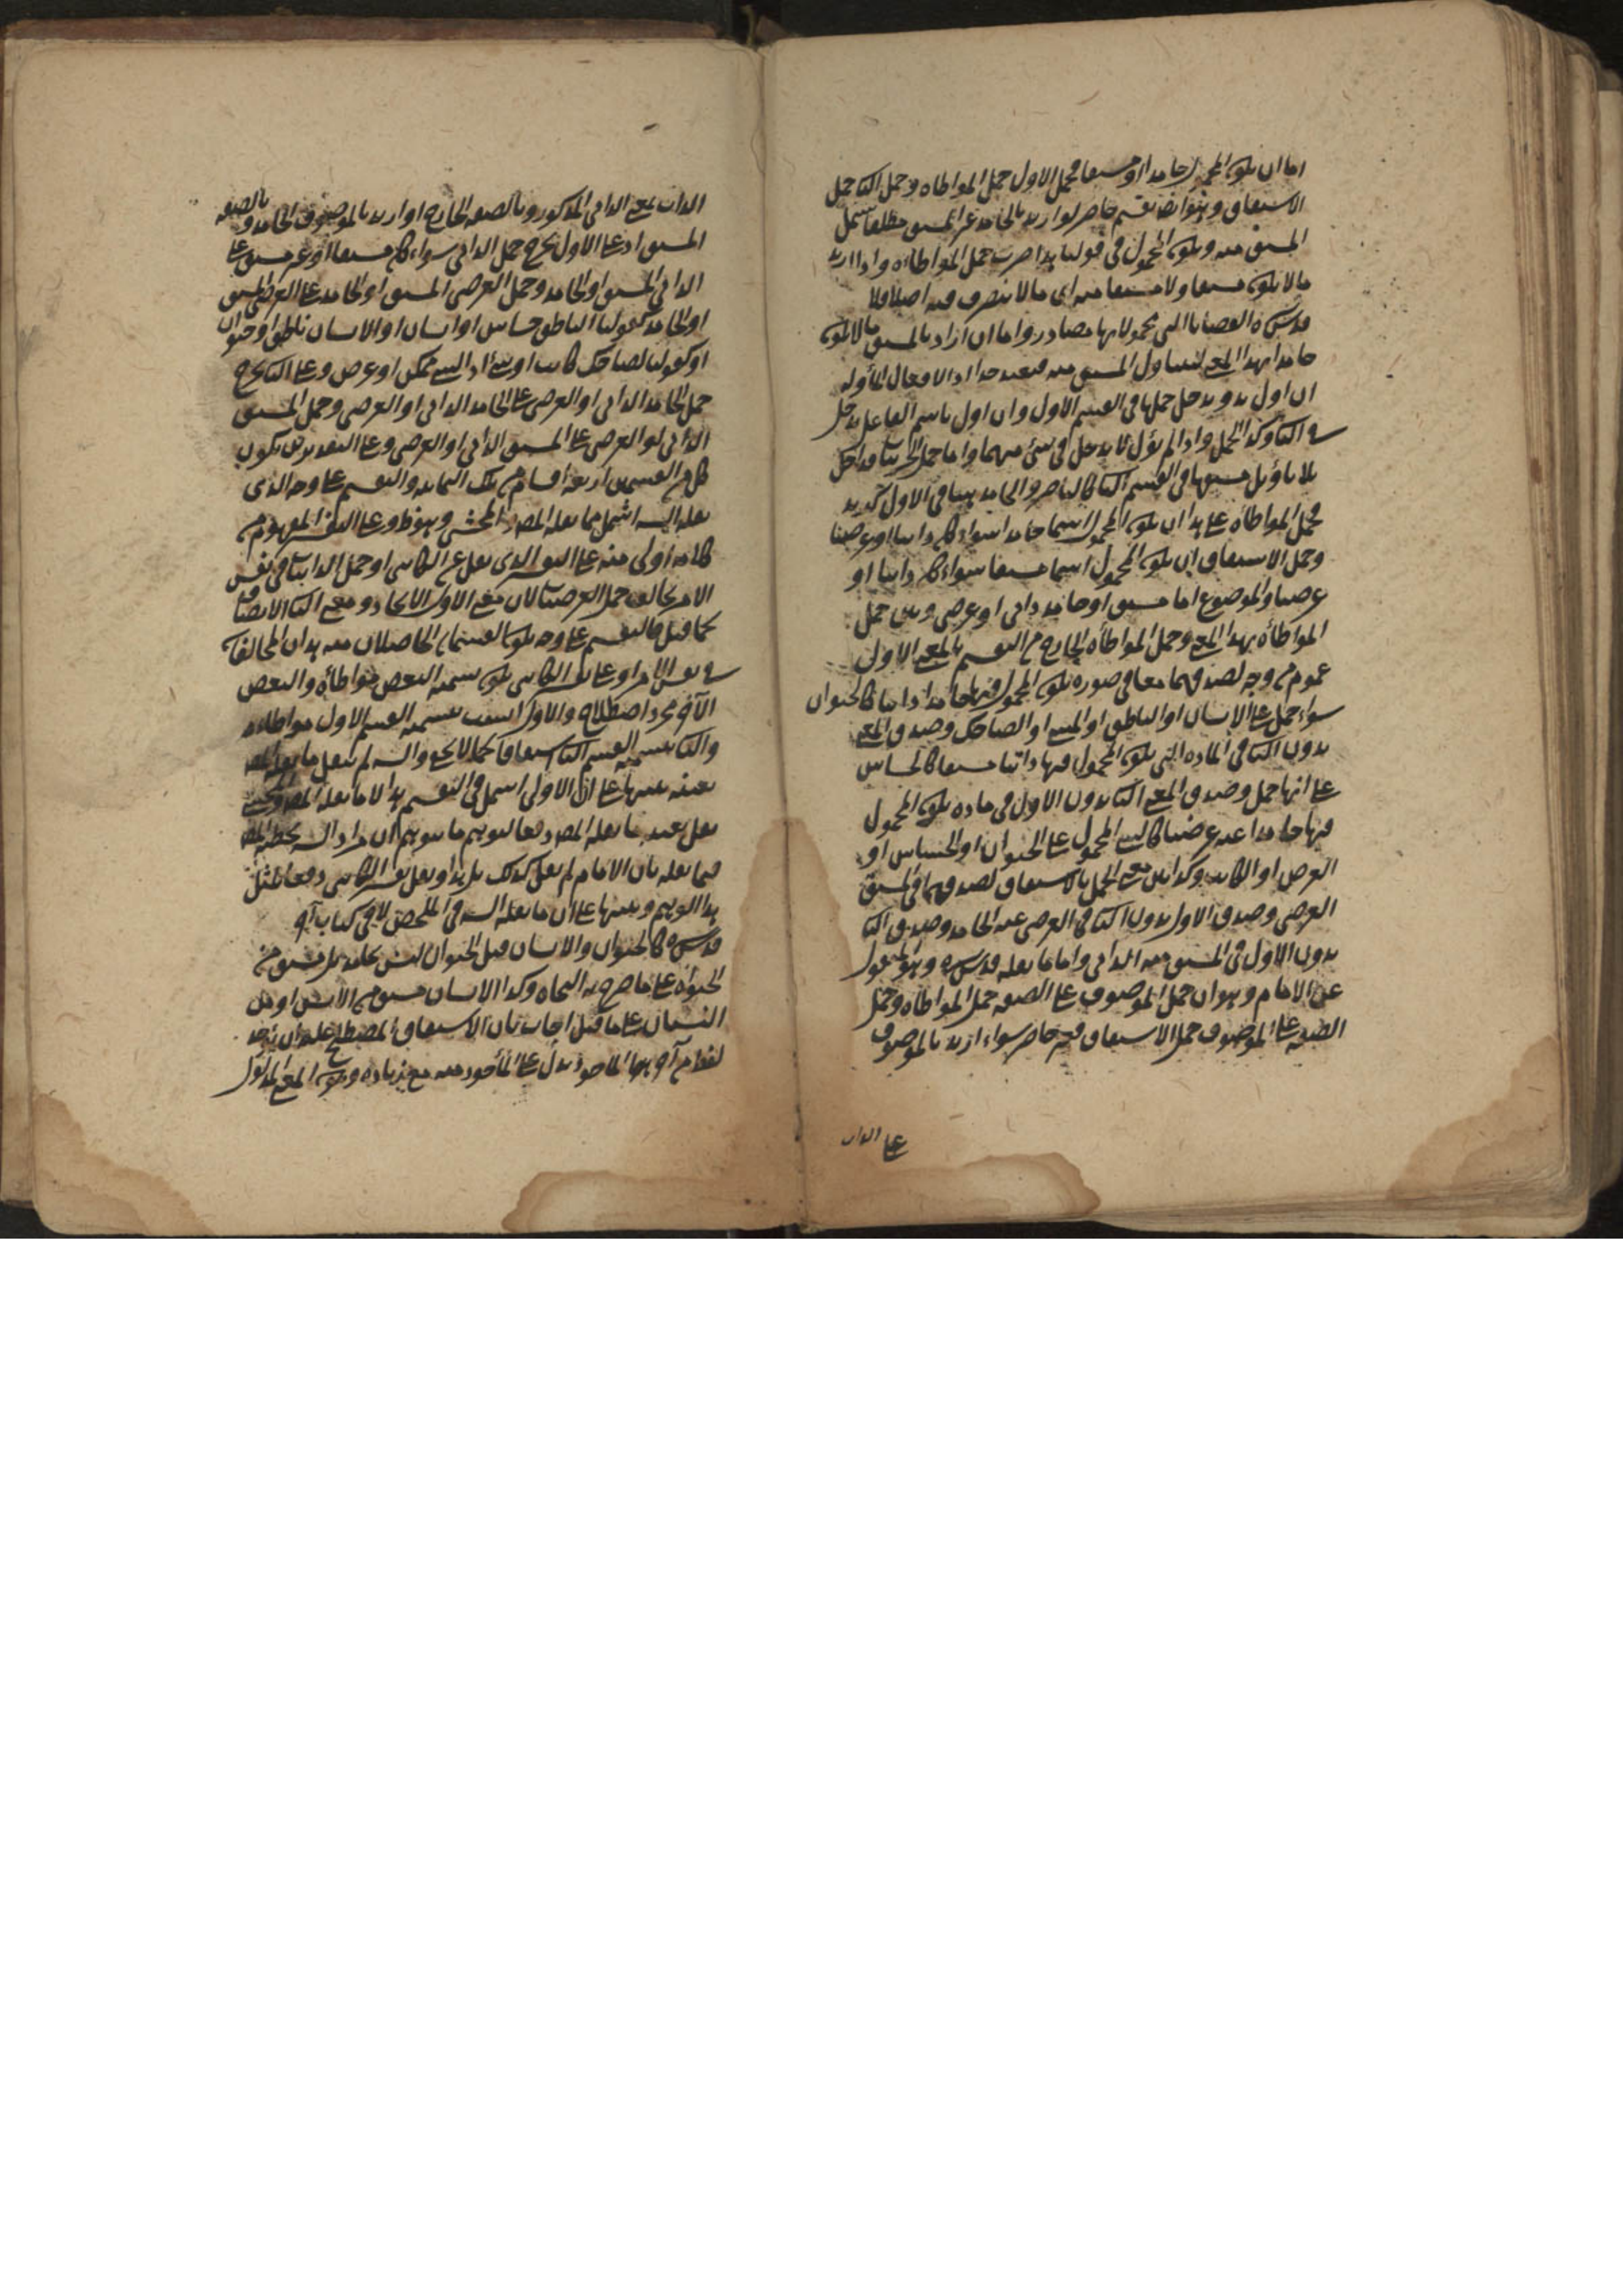 اما ان يكون المحمول جامدا او مشتقا فحمل الاول حمل المواطاه وحمل الثانى حمل
الاشتقاق وهو ايضا تقسيم حاصر لو اريد بالجامد غير المشتق مطلقا يشمل
المشتق منه ويكون المحمول فى قولنا هذا ضرب حمل المواطاه واذا اريد
ما لا يكون مشتقا ولا مشتقا منه اى ما لا يتصرف فيه اصلا فلا
قدس سره القضايا التى محمولاتها مصادر واما ان اراد بالمشتق ما لا يكون
جامدا بهذا المعنى ليتناول المشتق منه فبعيد جدا اذ الافعال المأوله
ان اول بذو يدخل حملها فى القسم الاول وان اول باسم الفاعل يدخل
فى الثانى وكذا الجمل واذا لم يؤل لا يدخل فى شئ منهما واما حمل الجزئيات فداخل
بلا تأويل مشتقها فى القسم الثانى كالناصر والجامد منها فى الاول كزيد
فحمل المواطاه على هذا ان يكون المحمول اسما جامدا سواء كان ذاتيا او عرضيا
وحمل الاشتقاق ان يكون المحمول اسما مشتقا سواء كان ذاتيا او
عرضيا والموضوع اما مشتق او جامد ذاتى او عرضى وبين حمل
المواطاه بهذا المعنى وحمل المواطاه الخارج من التقسيم بالمعنى الاول
عموم من وجه لصدقهما معا فى صورة يكون المحمول فيها جامدا ذاتيا كالحيوان
سواء حمل على الانسان او الناطق او الماشى او الضاحك وصدق المعنى
بدون الثانى فى الماده التى يكون المحمول فيها ذاتيا مشتقا كالحساس
على انها حمل وصدق المعنى الثانى بدون الاول فى ماده يكون المحمول
فيها جامدا عرضيا كالشئ المحمول على الحيوان او الحساس او
العرض او الكاتب وكذا بين معنى الحمل بالاشتقاق لصدقهما فى المشتق
العرضى وصدق الاول بدون الثانى فى العرضى غير الجامد وصدق الثانى
بدون الاول فى المشتق منه الذاتى واما ما نقله قدس سره وهو المنقول
عن الامام وهو ان حمل الموصوف على الصفه حمل المواطاه وحمل
الصفه على الموصوف حمل الاشتقاق فغير حاصر سواء اريد بالموصوف
على الذات
الذات بمعنى الذاتى المذكور وبالصفه الخارج او اريد بالموصوف الجامد وبالصفه
المشتق اذ على الاول يخرج حمل الذاتى سواء كان مشتقا او غير مشتق على
الذاتى المشتق او الجامد وحمل العرضى المشتق او الجامد على العرضى المشتق
او الجامد كقولنا الناطق حساس او انسان او الانسان ناطق او حيوان
او كقولنا الضاحك كاتب او شئ او الشئ ممكن او عرض وعلى الثانى يخرج
حمل الجامد الذاتى او العرضى على الجامد الذاتى او العرضى وحمل المشتق
الذاتى او العرضى على المشتق الذاتى او العرضى وعلى التقديرين يكون
كل من القسمين اربعة اقسام من تلك الثمانيه والتقسيم على وجه الذى
نقله السيد اشمل مما نقله المصدر المحشى وهو ظ وعلى التفسير المفهوم من
كلامه اولى منه على التفسير الذى نقل عن الكاتبى او حمل الذاتيات فى نفس
الامر يخالف حمل العرضيات لان معنى الاول الاتحاد ومعنى الثانى الاتصاف
كما قيل فالتقسيم على وجه يكون القسمان الحاصلان منه هذان المتخالفان
فى نفس الامر او على نقل الكاتبى يكون تسميه البعض مواطاه والبعض
الآخر مجرد اصطلاح والاول انسب بتسميه القسم الاول مواطاه
والثانى بتسميه القسم الثانى اشتقاقا كما لا يخفى والسيد لم ينقل ما نقله المصدر
بعينه تنبيها على ان الاولى اشمل فى التقسيم هذا لا ما نقله المصدر والمحشى
نقل بعينه ما نقله المصدر دفعا لتوهم ما يتوهم ان مراد السيد تخطئه المصدر
فيما نقله بان الامام لم يقل كذلك بل هذا ونقل تفسير الكاتبى دفعا لمثل
هذا التوهم وتنبيها على ان ما نقله السيد فى الملخص لا فى كتاب آخر
قدس سره كالحيوان والانسان قيل الحيوان ليس بجامد بل مشتق من
الحيوة على ما صرح به النحاه وكذا الانسان مشتق من الانس او من
النسيان على ما قيل اجاب بان الاشتقاق المصطلح عليه ان يؤخذ
لفظ من آخر بهذا المأخوذ يدل على المأخوذ منه مع زياده ويكون المعنى المدلول